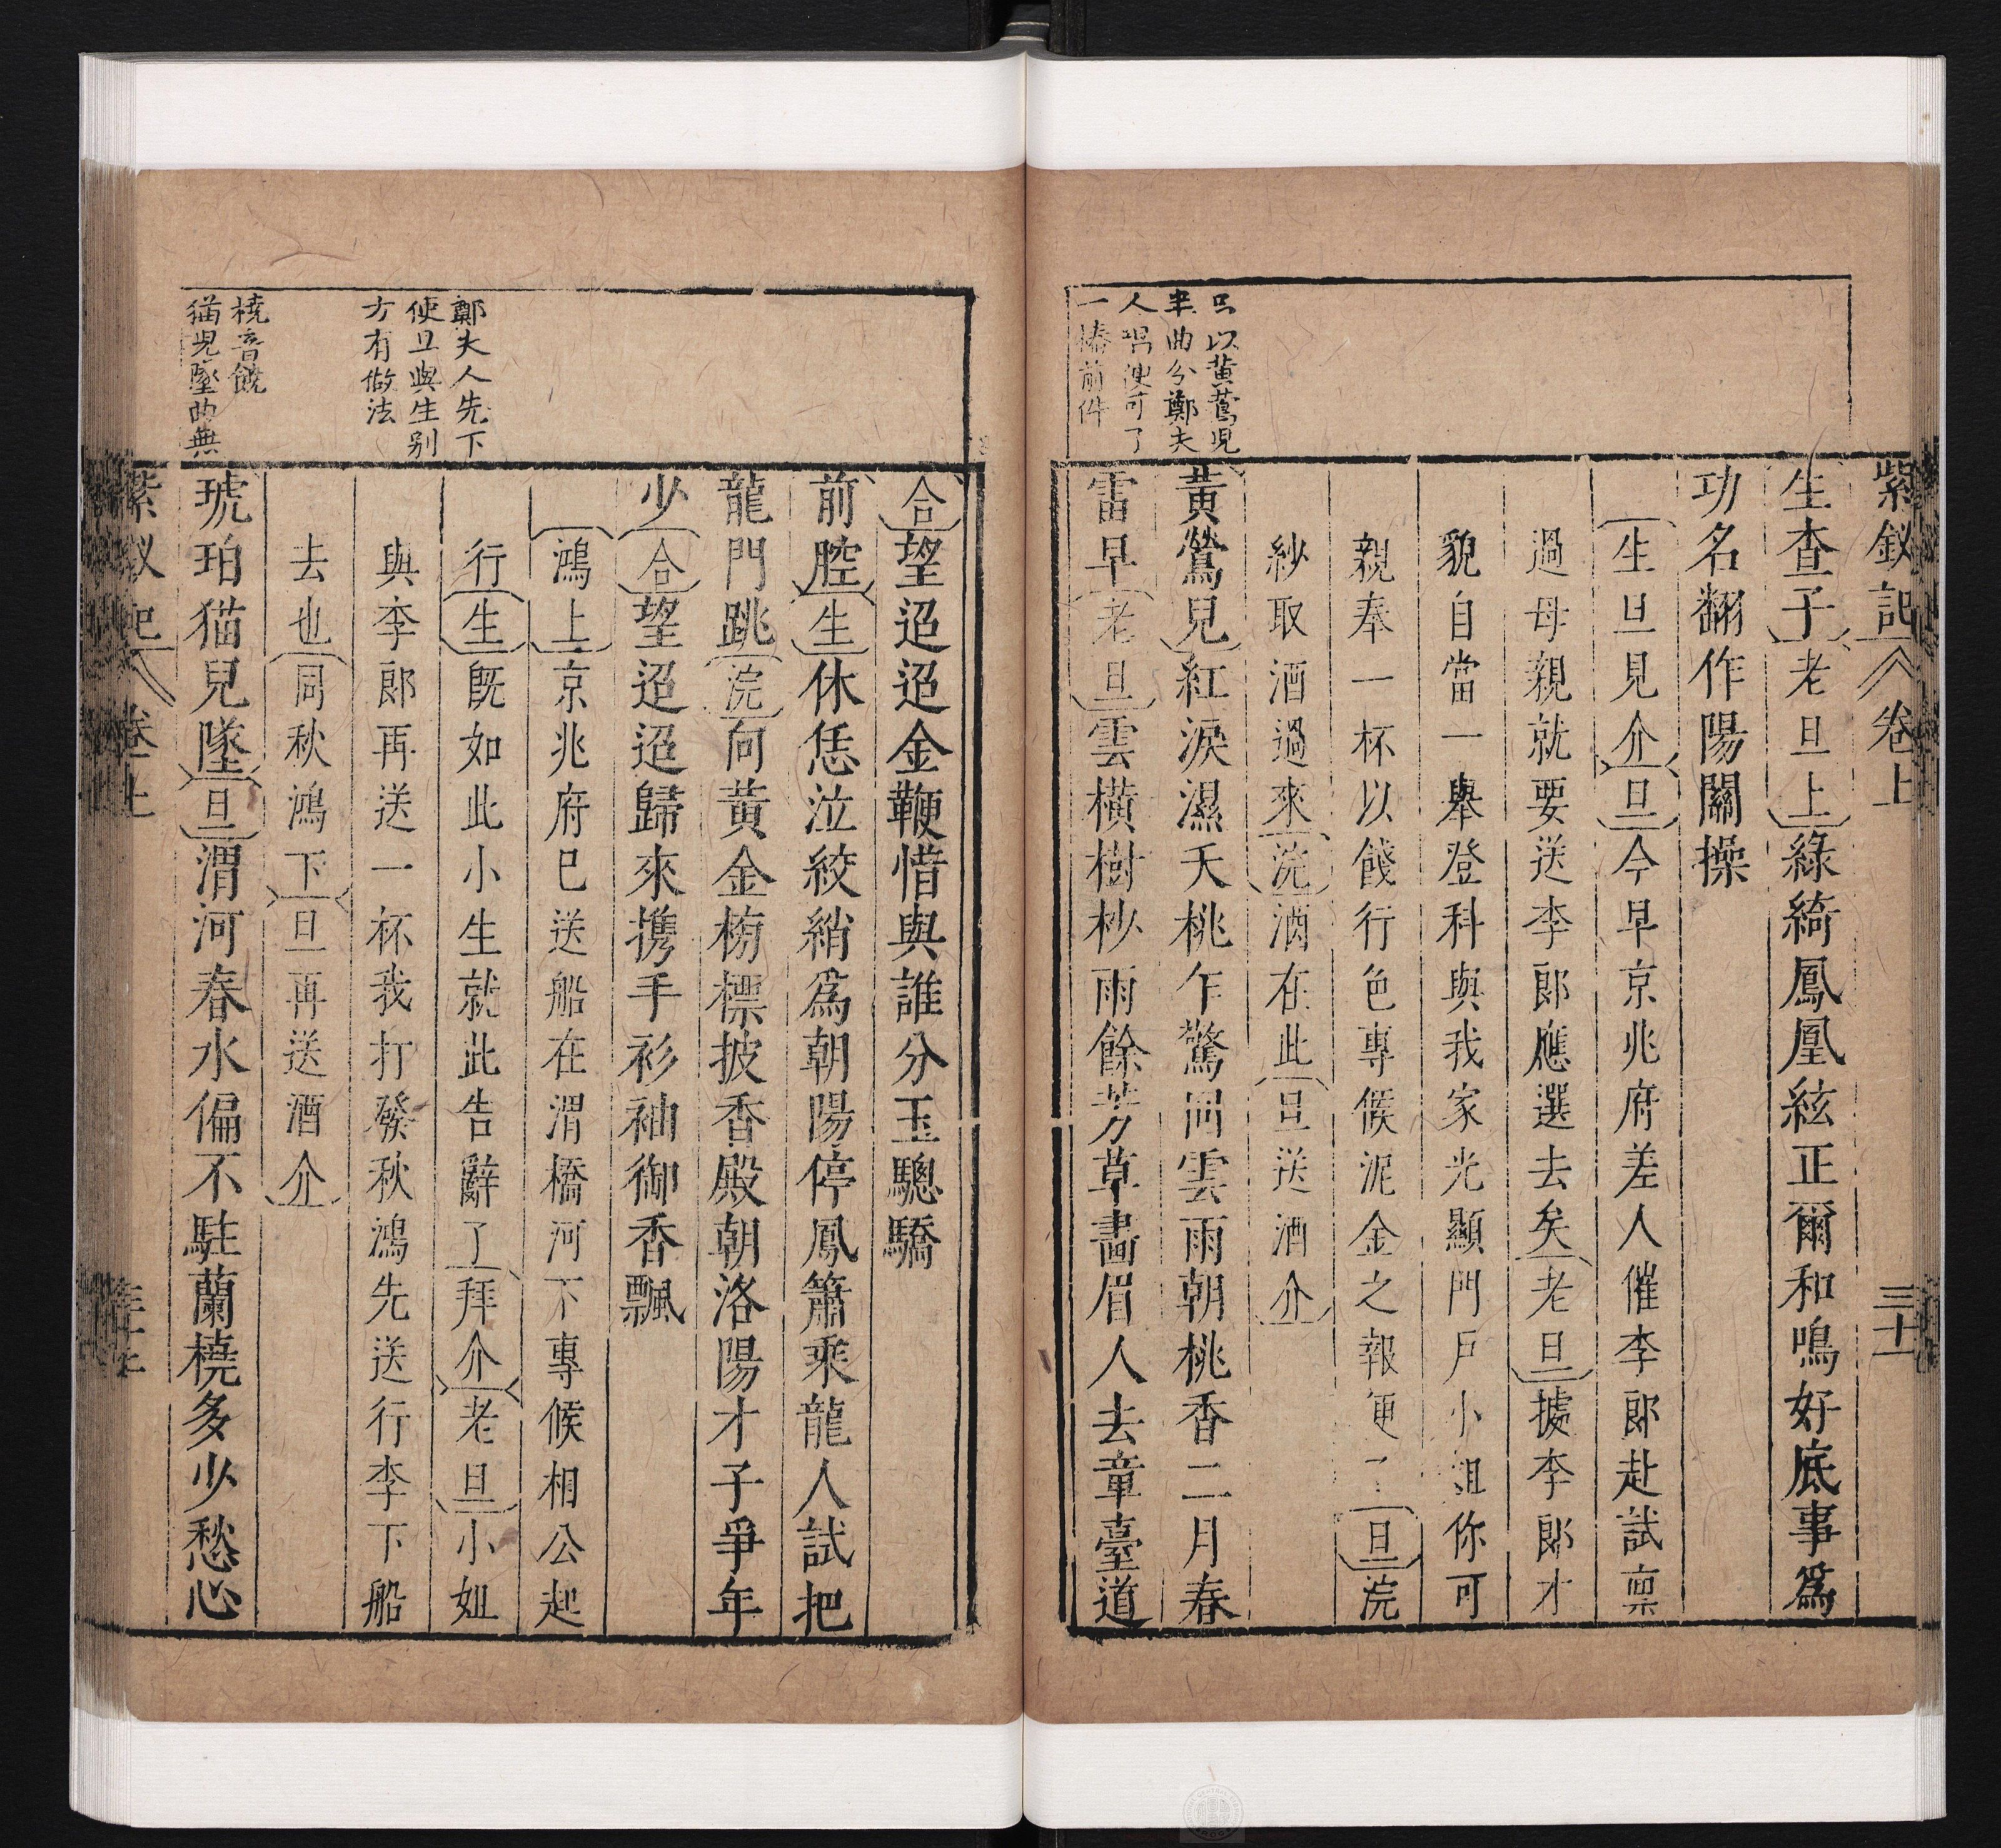 紫釵記 卷上 三十一
生查子老旦上綠綺鳳凰絃正爾和鳴好底事爲
功名翻作陽關操
生旦見介旦今早京兆府差人催李郎赴試稟
過母親就要送李郎應選去矣老旦據李郎才
貌自當一舉登科與我家光顯門戶小姐你可
親奉一杯以餞行色專候泥金之報便了旦浣
紗取酒過來浣酒在此旦送酒介
黃鶯兒紅淚濕夭桃乍驚回雲雨朝桃香二月春
雷早老旦雲橫樹杪雨餘芳草畵眉人去章臺道
只以黃鶯兒
半曲分鄭夫
人唱便可了
一樁前件
合望迢迢金鞭惜與誰分玉驄驕
前腔生休恁泣絞綃爲朝陽停鳳簫乘龍人試把
龍門跳浣向黃金榜標披香殿朝洛陽才子爭年
少合望迢迢歸來携手衫袖御香飄
鴻上京兆府已送船在渭橋河下專候相公起
行生旣如此小生就此告辭了拜介老旦小姐
與李郎再送一杯我打發秋鴻先送行李下船
去也同秋鴻下旦再送酒介
琥珀猫兒墜旦渭河春水偏不駐蘭橈多少愁心
鄭夫人先下
使旦與生別
方有做法
橈音饒
猫兒墜曲無
紫釵記 卷上